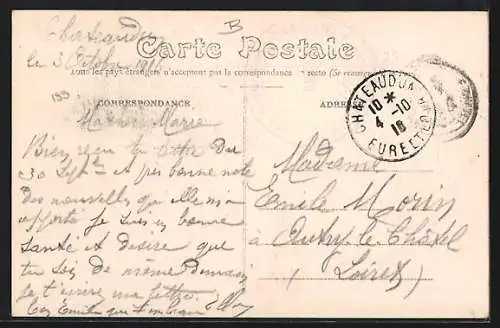 Chateaudun
le 3 Octobre 1916
B
Carte Postale
Tous les pays étrangers n'acceptent pas la correspondance au recto (Se renseigner
CORRESPONDANCE
ADRESSE
CHATEAUDUN
10 *
4 -10
16
EURE ET LOIR
Marie
Bien reçu ta lettre du
30 Sept. et pris bonne note
des nouvelles que elle m'a
apporté je suis en bonne
santé et désire que
toi Soi de même demain
je t'écrire une lettre.
Ton Emile que t'embrasse
Madame
Emile Morin
à Autry-le-Châtel
(Loiret)